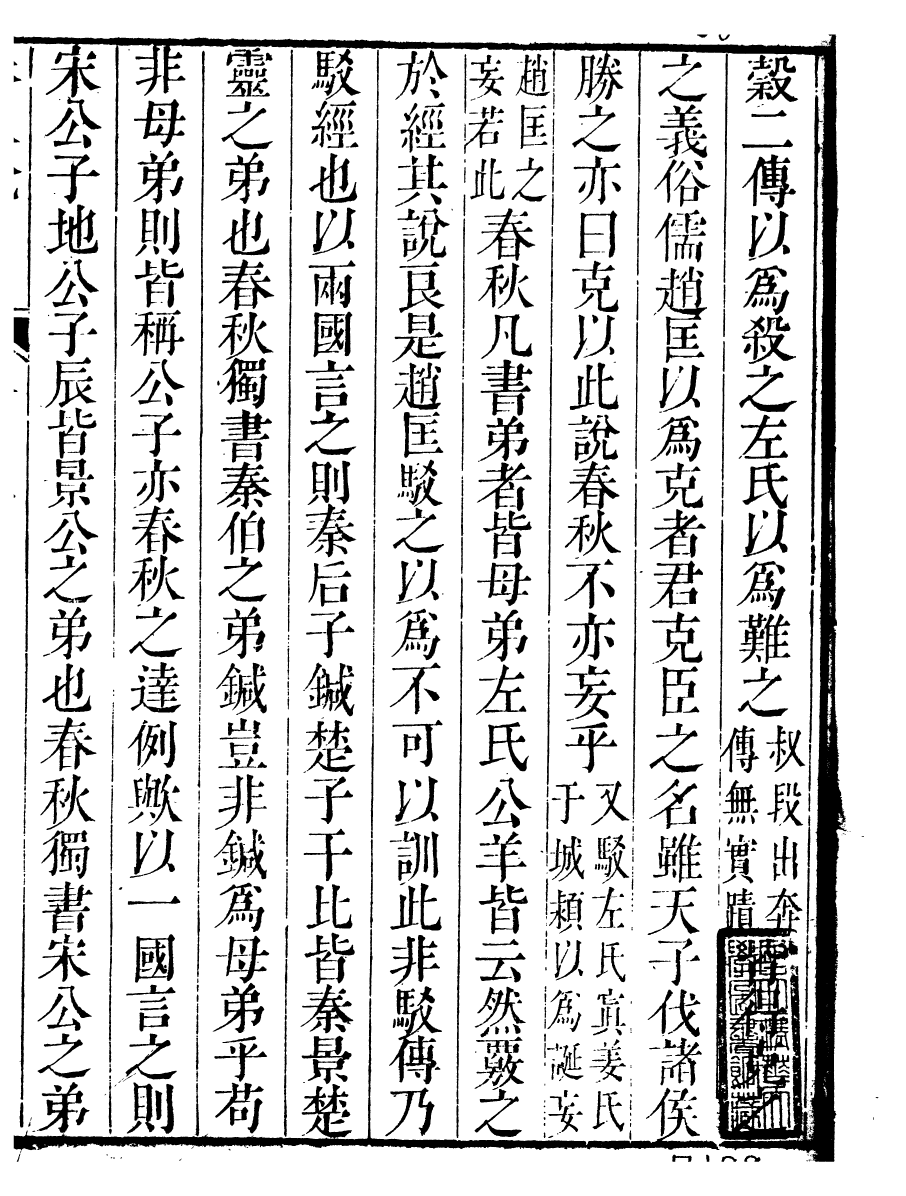 穀二傳以爲殺之左氏以爲難之叔段出奔傳無實蹟
之義俗儒趙匡以爲克者君克臣之名雖天子伐諸侯
勝之亦曰克以此說春秋不亦妄乎又駁左氏寘姜氏于城潁以爲誕妄
趙匡之妄若此春秋凡書弟者皆母弟左氏公羊皆云然覈之
於經其說良是趙匡駁之以爲不可以訓此非駁傳乃
駁經也以兩國言之則秦后子鍼楚子干比皆秦景楚
靈之弟也春秋獨書秦伯之弟鍼豈非鍼爲母弟乎苟
非母弟則皆稱公子亦春秋之達例歟以一國言之則
宋公子地公子辰皆景公之弟也春秋獨書宋公之弟